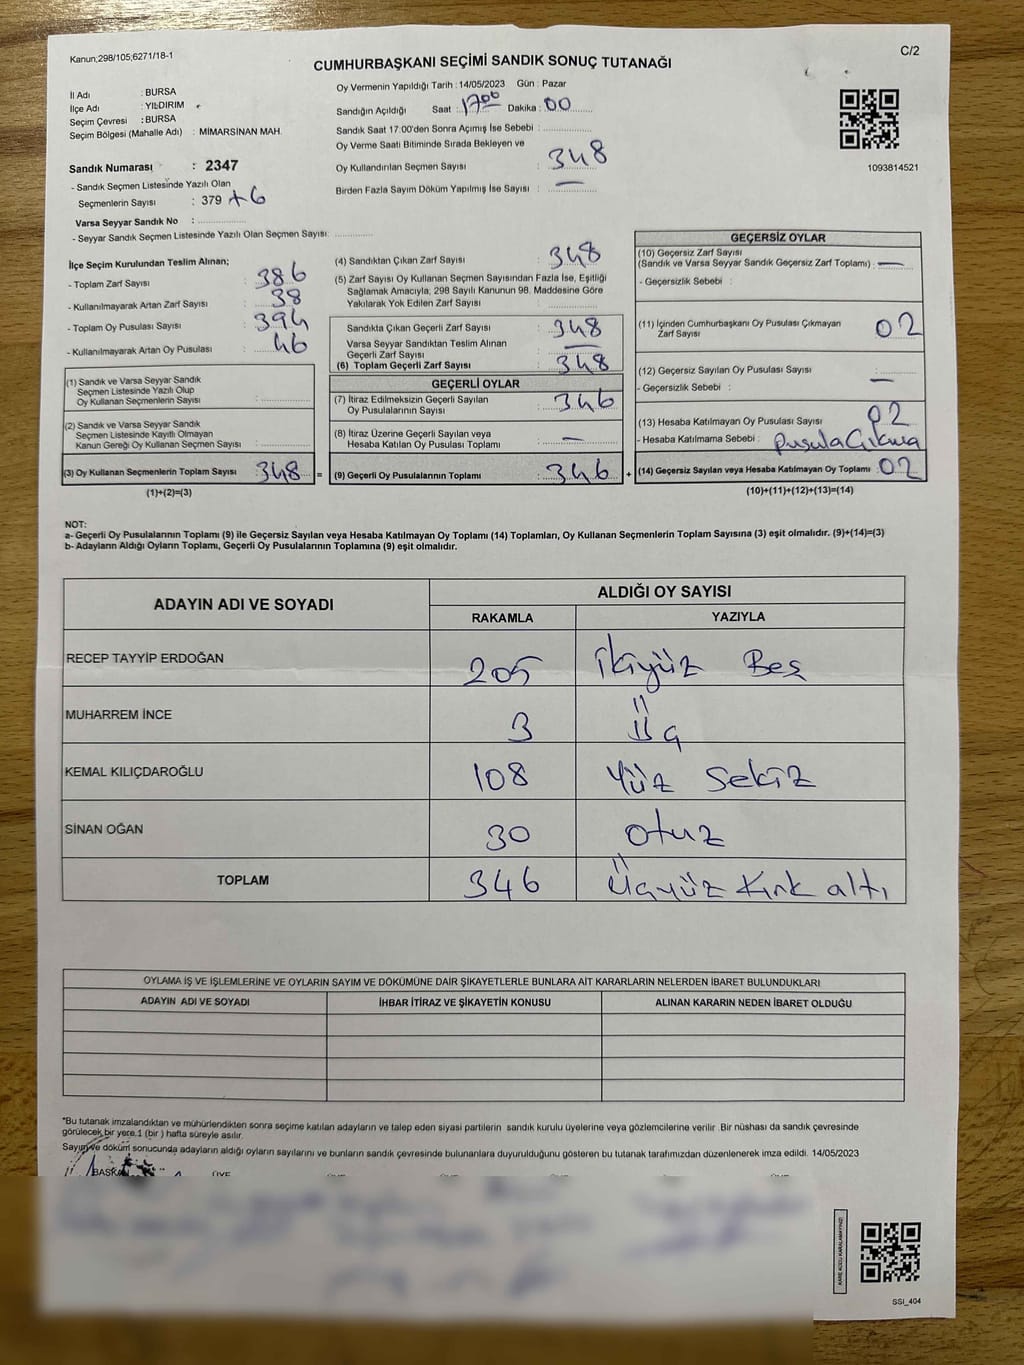 Kanun;298/105;6271/18-1
C/2
CUMHURBAŞKANI SEÇİMİ SANDIK SONUÇ TUTANAĞI
İl Adı : BURSA
İlçe Adı : YILDIRIM
Seçim Çevresi : BURSA
Seçim Bölgesi (Mahalle Adı) : MİMARSİNAN MAH.
Sandık Numarası : 2347
- Sandık Seçmen Listesinde Yazılı Olan
Seçmenlerin Sayısı : 379 +6
Varsa Seyyar Sandık No :
- Seyyar Sandık Seçmen Listesinde Yazılı Olan Seçmen Sayısı:
Oy Vermenin Yapıldığı Tarih : 14/05/2023 Gün : Pazar
Sandığın Açıldığı Saat : 17 00 Dakika : 00
Sandık Saat 17:00'den Sonra Açımış İse Sebebi :
Oy Verme Saati Bitiminde Sırada Bekleyen ve
Oy Kullandırılan Seçmen Sayısı : 348
Birden Fazla Sayım Döküm Yapılmış İse Sayısı : —
1093814521
İlçe Seçim Kurulundan Teslim Alınan;
- Toplam Zarf Sayısı : 386
- Kullanılmayarak Artan Zarf Sayısı : 38
- Toplam Oy Pusulası Sayısı : 394
- Kullanılmayarak Artan Oy Pusulası : 46
(1) Sandık ve Varsa Seyyar Sandık
Seçmen Listesinde Yazılı Olup
Oy Kullanan Seçmenlerin Sayısı :
(2) Sandık ve Varsa Seyyar Sandık
Seçmen Listesinde Kayıtlı Olmayan
Kanun Gereği Oy Kullanan Seçmen Sayısı :
(3) Oy Kullanan Seçmenlerin Toplam Sayısı : 348 =
(1)+(2)=(3)
(4) Sandıktan Çıkan Zarf Sayısı : 348
(5) Zarf Sayısı Oy Kullanan Seçmen Sayısından Fazla İse, Eşitliği
Sağlamak Amacıyla, 298 Sayılı Kanunun 98. Maddesine Göre
Yakılarak Yok Edilen Zarf Sayısı :
Sandıkta Çıkan Geçerli Zarf Sayısı : 348
Varsa Seyyar Sandıktan Teslim Alınan
Geçerli Zarf Sayısı : —
(6) Toplam Geçerli Zarf Sayısı : 348
GEÇERLİ OYLAR
(7) İtiraz Edilmeksizin Geçerli Sayılan
Oy Pusulalarının Sayısı : 346
(8) İtiraz Üzerine Geçerli Sayılan veya
Hesaba Katılan Oy Pusulası Toplamı : —
(9) Geçerli Oy Pusulalarının Toplamı : 346 +
GEÇERSİZ OYLAR
(10) Geçersiz Zarf Sayısı
(Sandık ve Varsa Seyyar Sandık Geçersiz Zarf Toplamı) : —
- Geçersizlik Sebebi :
(11) İçinden Cumhurbaşkanı Oy Pusulası Çıkmayan
Zarf Sayısı : 02
(12) Geçersiz Sayılan Oy Pusulası Sayısı : —
- Geçersizlik Sebebi :
(13) Hesaba Katılmayan Oy Pusulası Sayısı : 02
- Hesaba Katılmama Sebebi :
(14) Geçersiz Sayılan veya Hesaba Katılmayan Oy Toplamı : 02
(10)+(11)+(12)+(13)=(14)
NOT:
a- Geçerli Oy Pusulalarının Toplamı (9) ile Geçersiz Sayılan veya Hesaba Katılmayan Oy Toplamı (14) Toplamları, Oy Kullanan Seçmenlerin Toplam Sayısına (3) eşit olmalıdır. (9)+(14)=(3)
b- Adayların Aldığı Oyların Toplamı, Geçerli Oy Pusulalarının Toplamına (9) eşit olmalıdır.
ADAYIN ADI VE SOYADI ALDIĞI OY SAYISI
RAKAMLA YAZIYLA
RECEP TAYYİP ERDOĞAN 205 İkiyüz Beş
MUHARREM İNCE 3 Üç
KEMAL KILIÇDAROĞLU 108 Yüz Sekiz
SİNAN OĞAN 30 Otuz
TOPLAM 346 Üçyüz Kırk altı
OYLAMA İŞ VE İŞLEMLERİNE VE OYLARIN SAYIM VE DÖKÜMÜNE DAİR ŞİKAYETLERLE BUNLARA AİT KARARLARIN NELERDEN İBARET BULUNDUKLARI
ADAYIN ADI VE SOYADI İHBAR İTİRAZ VE ŞİKAYETİN KONUSU ALINAN KARARIN NEDEN İBARET OLDUĞU
*Bu tutanak imzalandıktan ve mühürlendikten sonra seçime katılan adayların ve talep eden siyasi partilerin sandık kurulu üyelerine veya gözlemcilerine verilir .Bir nüshası da sandık çevresinde
görülecek bir yere 1 (bir ) hafta süreyle asılır.
Sayım ve döküm sonucunda adayların aldığı oyların sayılarını ve bunların sandık çevresinde bulunanlara duyurulduğunu gösteren bu tutanak tarafımızdan düzenlenerek imza edildi. 14/05/2023
BAŞKAN ÜYE
KARE KODU KARALAMAYINIZ!
SSI_404